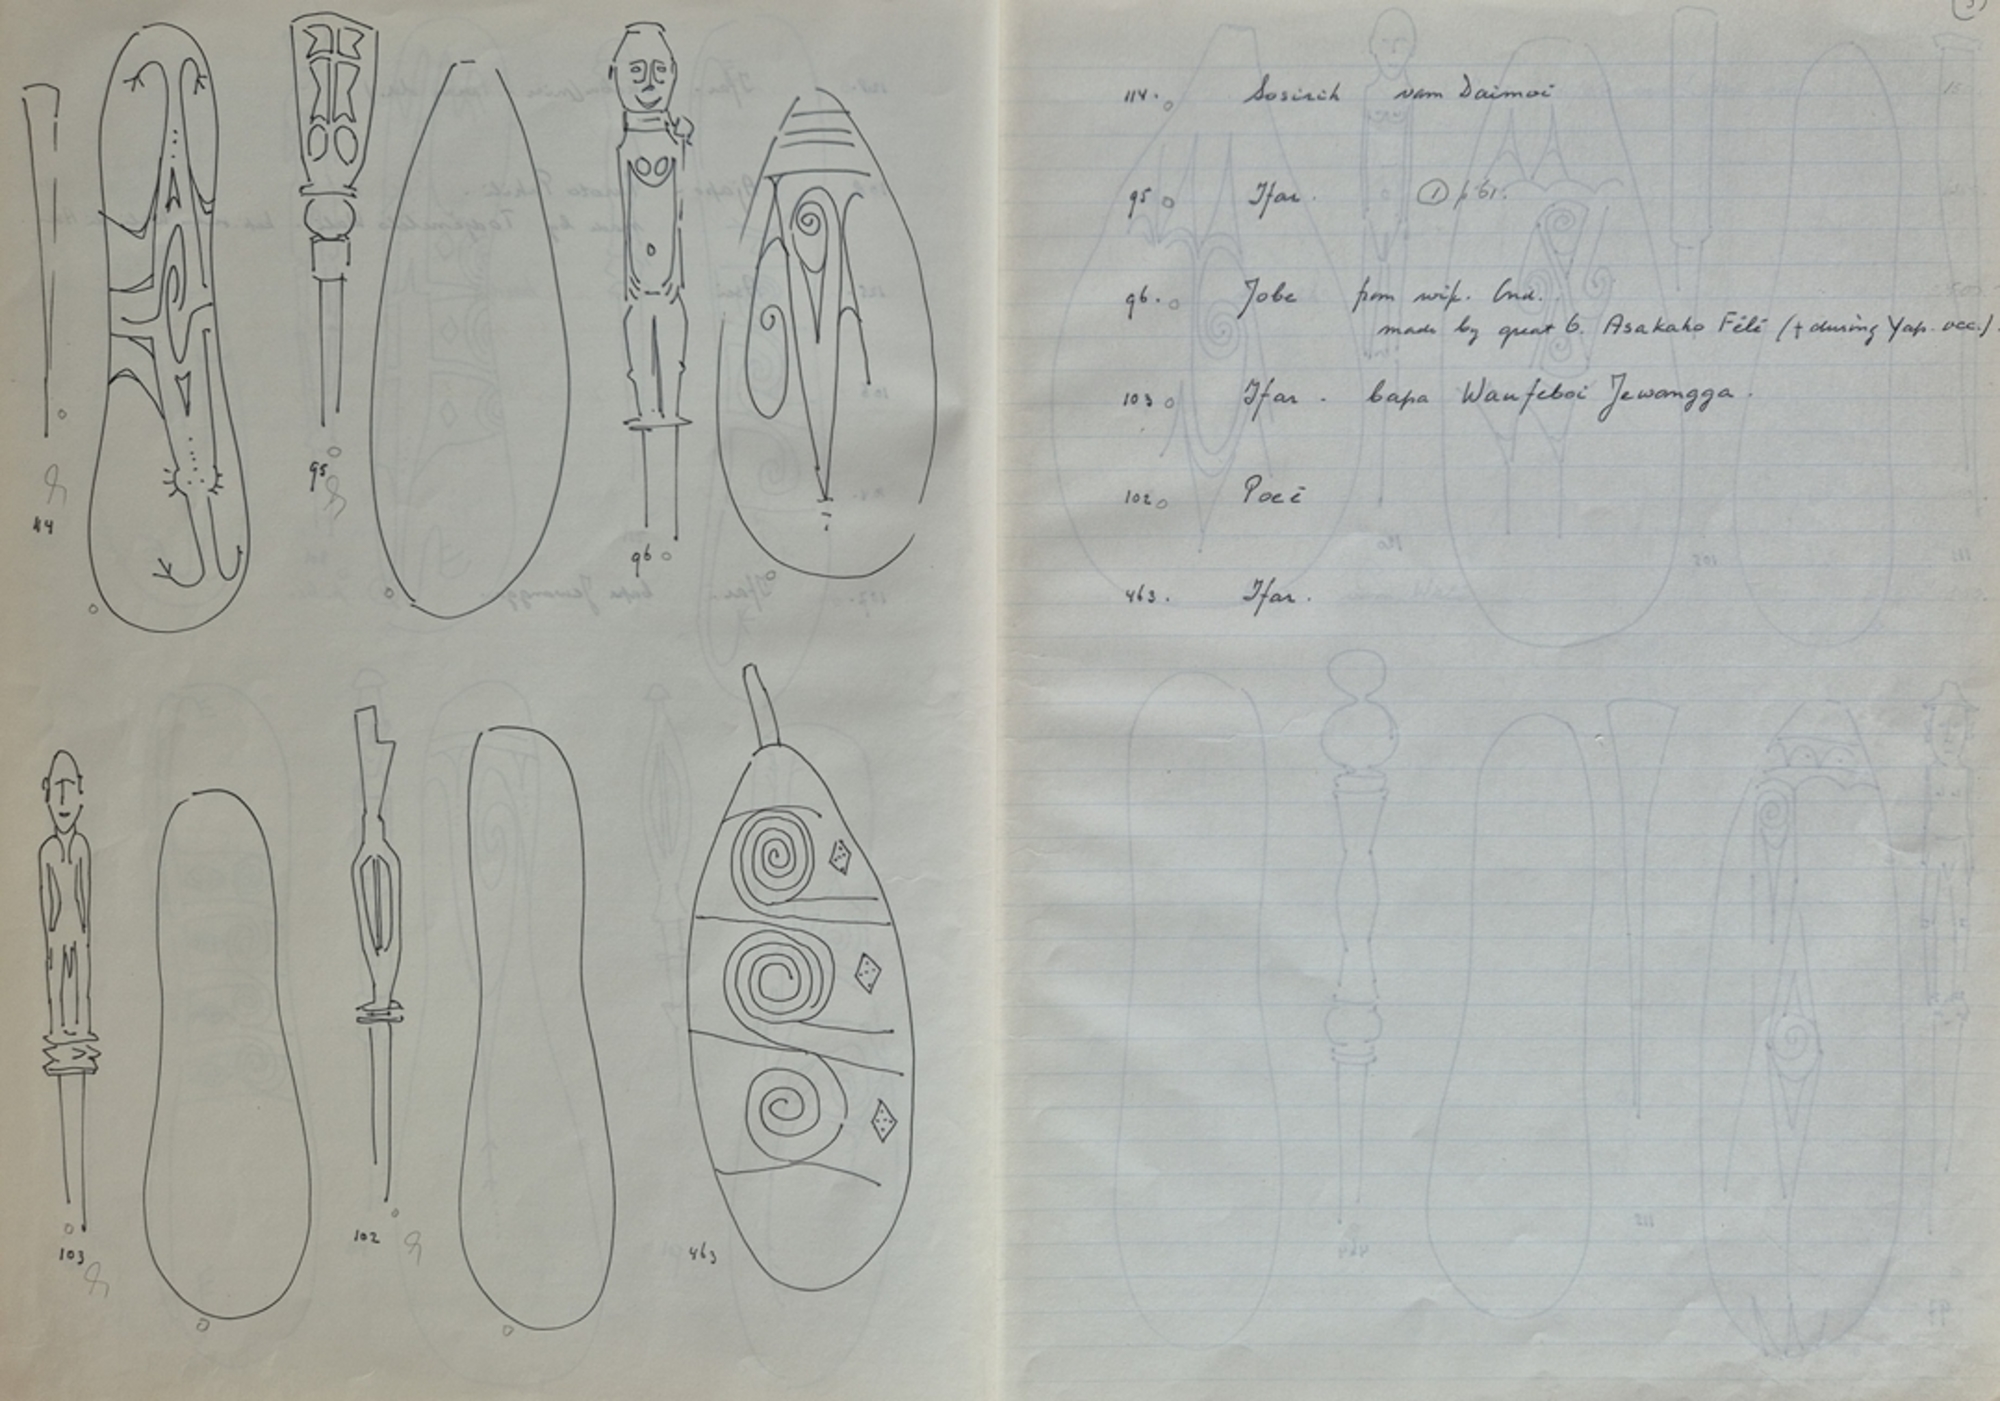 114
95
96
103
102
463
114. Sosirih vam Daimoi
95 Ifar. ① p 61.
96. Jobe from wife. Ond.
made by great b. Asakaho Fēlē († during Yap. occ.)
103 Ifar. bapa Waufeboi Jewangga.
102 Poeē
463. Ifar.